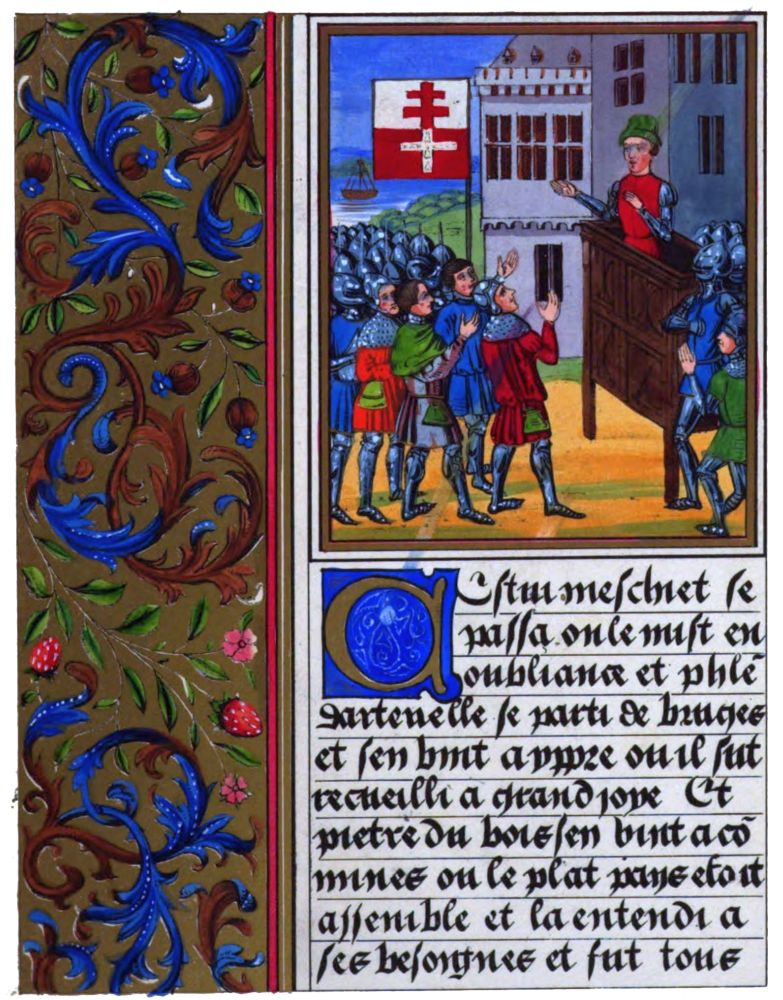 Cestui meschiet se
passa. on le mist en
oubliance et phlē
dartevelle se parti de bruges
et sen vint a yppre ou il fut
recueilli a grand joye Et
pietre du bois sen vint a cō
mines ou le plat pays estoit
assemble et la entendi a
ses besongnes et fut tous